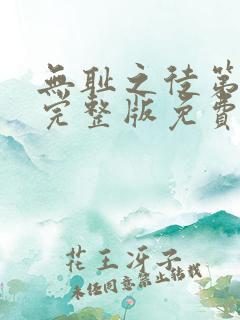 無耻之徒第
完整版免費
花王冴子
未经同意禁止转载